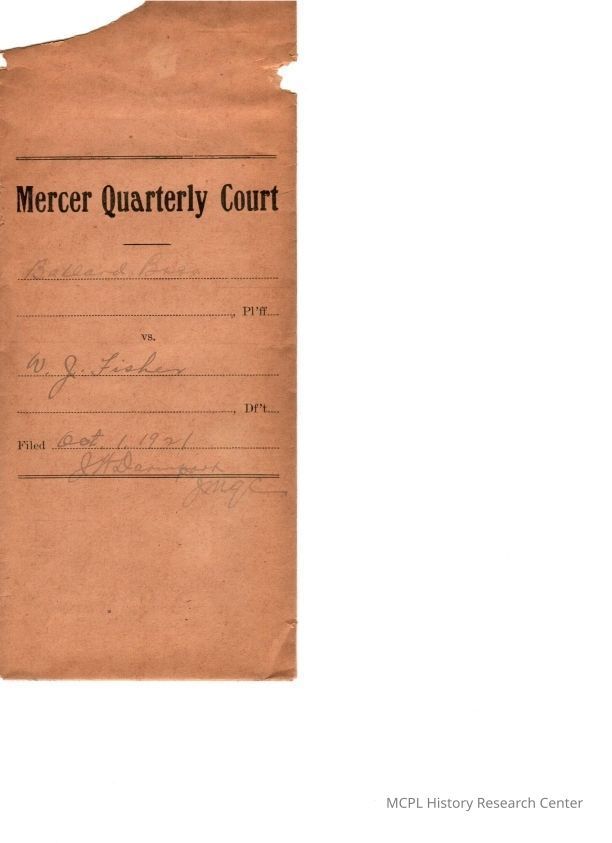 Mercer Quarterly Court
Ballard Bros
Pl'ff
vs.
W. J. Fisher
Df't
Filed Oct. 1, 1921
J W Davenport
J M Q C
MCPL History Research Center